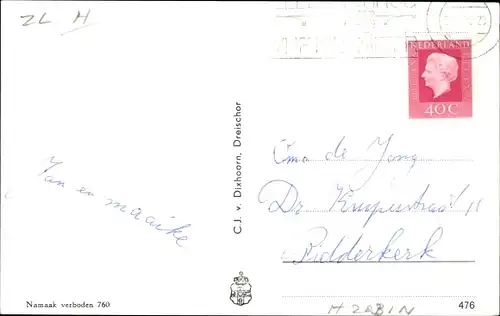 ZL H
NEDERLAND
40C
C.J. v. Dixhoorn, Dreischor
Jan en maaike
Oma de Jong
Dr Kuyperstraat 11
Ridderkerk
Namaak verboden 760
476